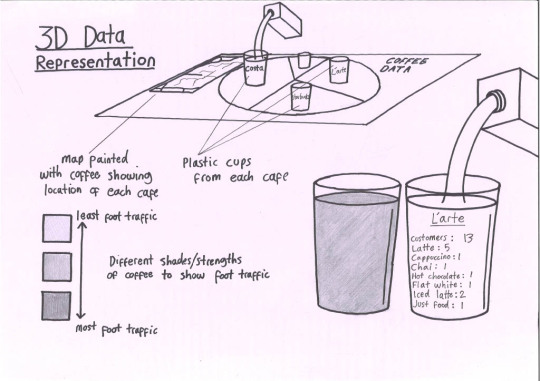 3D Data
Representation
Costa
L'arte
COFFEE
DATA
map painted
with coffee showing
location of each cafe
Plastic cups
from each cafe
least foot traffic
Different shades/strengths
of coffee to show foot traffic
most foot traffic
L'arte
Customers: 13
Latte: 5
Cappuccino: 1
Chai: 1
Hot chocolate: 1
Flat white: 1
Iced latte: 2
Just food: 1